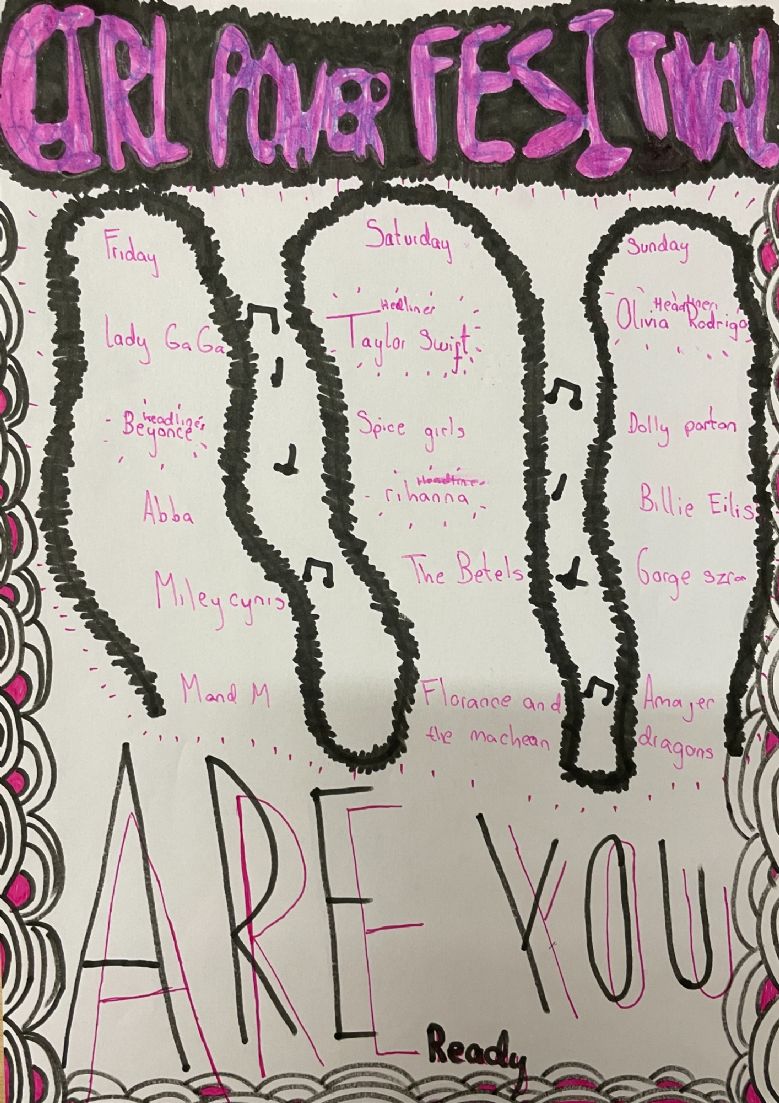 GIRL POWER FESTIVAL
Friday
Lady GaGa
headliner
Beyonce
Abba
Miley cyris
M and M
Saturday
Hedliner
Taylor Swift
Spice girls
Headliner
rihanna
The Betels
Florance and
the machean
Sunday
Headliner
Olivia Rodrigo
Dolly parton
Billie Eilis
Gorge
Amajer
dragons
ARE YOU
Ready